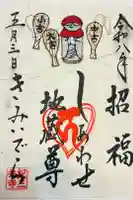 令和八年 招福
しあわせ
地蔵尊
五月三日 きみいでら